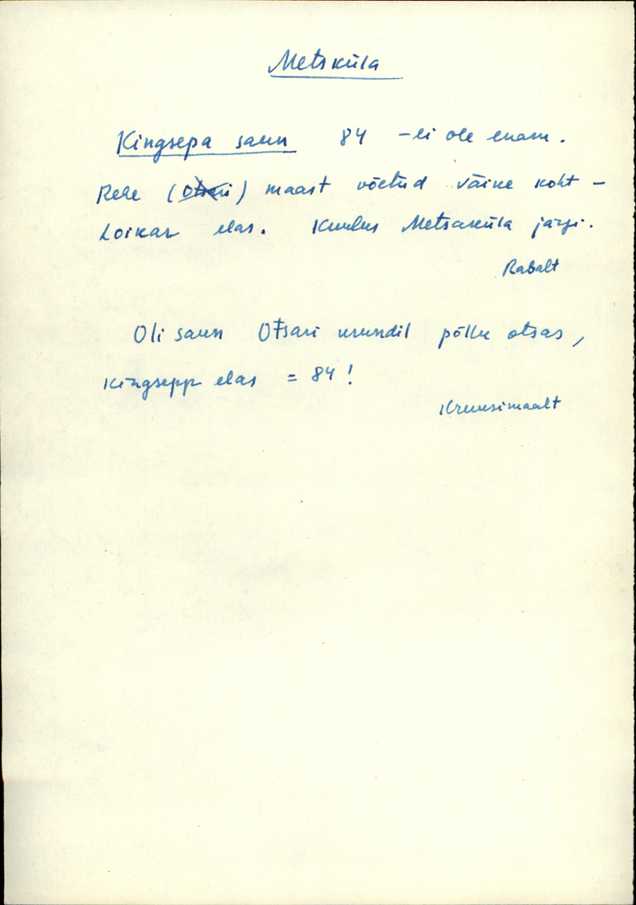 Metsküla
Kingsepa saun 84 – ei ole enam.
Rehe (Otsari) maast võetud väike koht –
Loikar elas. Kuulus Metsaküla järgi.
Rabalt
Oli saun Otsari krundil põllu otsas,
Kingsepp elas = 84!
Kruusimaalt